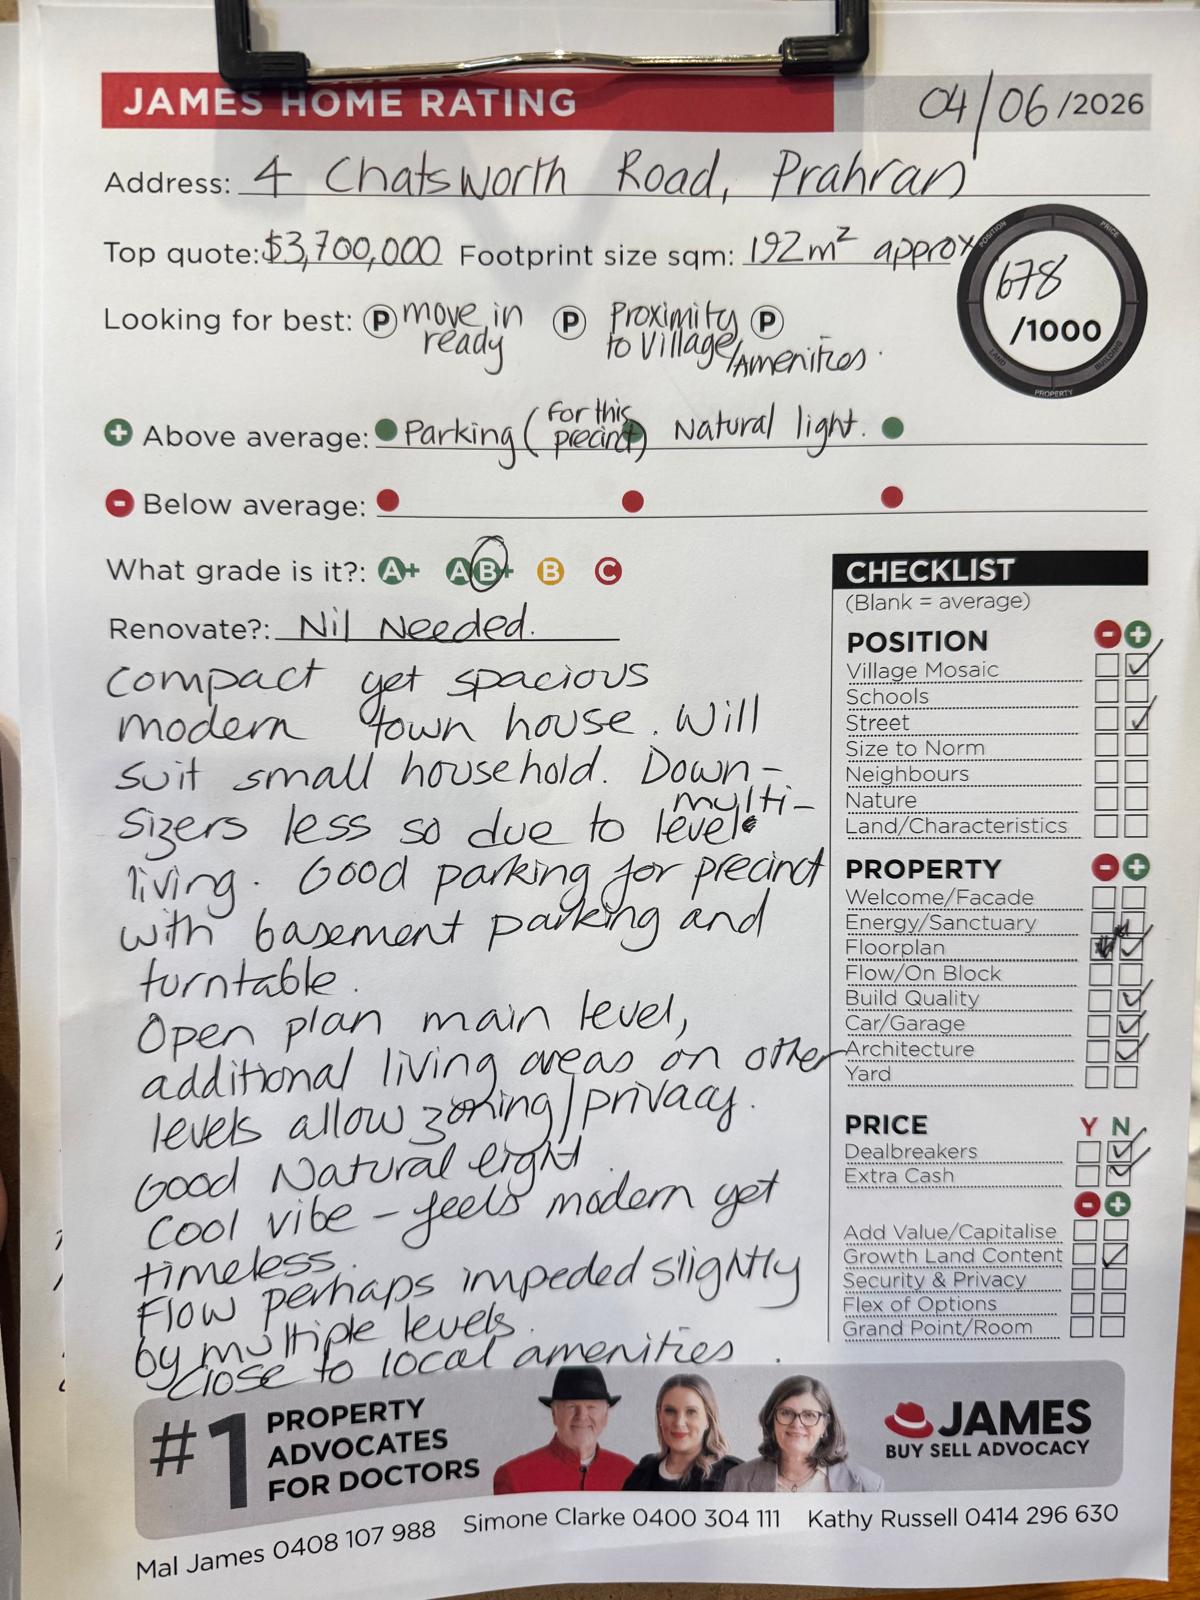 JAMES HOME RATING
04/06/2026
Address: 4 Chatsworth Road, Prahran
Top quote: $3,700,000 Footprint size sqm: 192m² approx
POSITION PRICE BUILDING PROPERTY LAND
678
/1000
Looking for best: P move in ready P Proximity to Village/Amenities. P
+ Above average: Parking (for this precinct) Natural light.
- Below average:
What grade is it?: A+ A B+ B C
Renovate?: Nil Needed.
Compact yet spacious
modern town house. Will
suit small household. Down-
sizers less so due to multi-
level
living. Good parking for precinct
with basement parking and
turntable.
Open plan main level,
additional living areas on other
levels allow zoning/privacy.
Good Natural light.
Cool vibe - feels modern yet
timeless.
Flow perhaps impeded slightly
by multiple levels.
Close to local amenities.
CHECKLIST
(Blank = average)
POSITION - +
Village Mosaic ✓
Schools
Street ✓
Size to Norm
Neighbours
Nature
Land/Characteristics
PROPERTY - +
Welcome/Facade
Energy/Sanctuary
Floorplan ✓
Flow/On Block
Build Quality ✓
Car/Garage ✓
Architecture ✓
Yard
PRICE Y N
Dealbreakers ✓
Extra Cash ✓
- +
Add Value/Capitalise
Growth Land Content ✓
Security & Privacy
Flex of Options
Grand Point/Room
#1 PROPERTY
ADVOCATES
FOR DOCTORS
JAMES
BUY SELL ADVOCACY
Mal James 0408 107 988 Simone Clarke 0400 304 111 Kathy Russell 0414 296 630